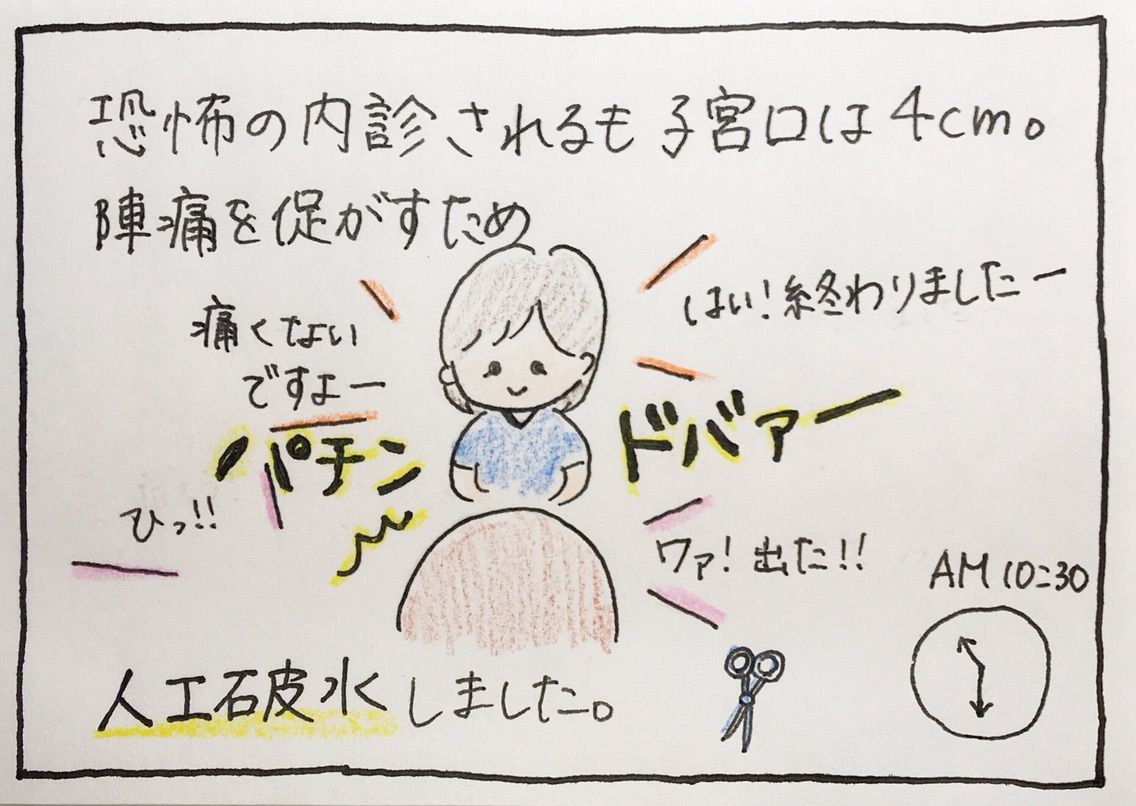 恐怖の内診されるも子宮口は4cm。
陣痛を促がすため
痛くない
ですよー
はい!終わりましたー
パチン
ドバァー
ひっ!!
ワァ!出た!!
AM10:30
人工破水しました。